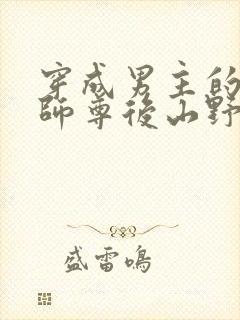 穿成男主的
師尊後山野
盛雷鳴